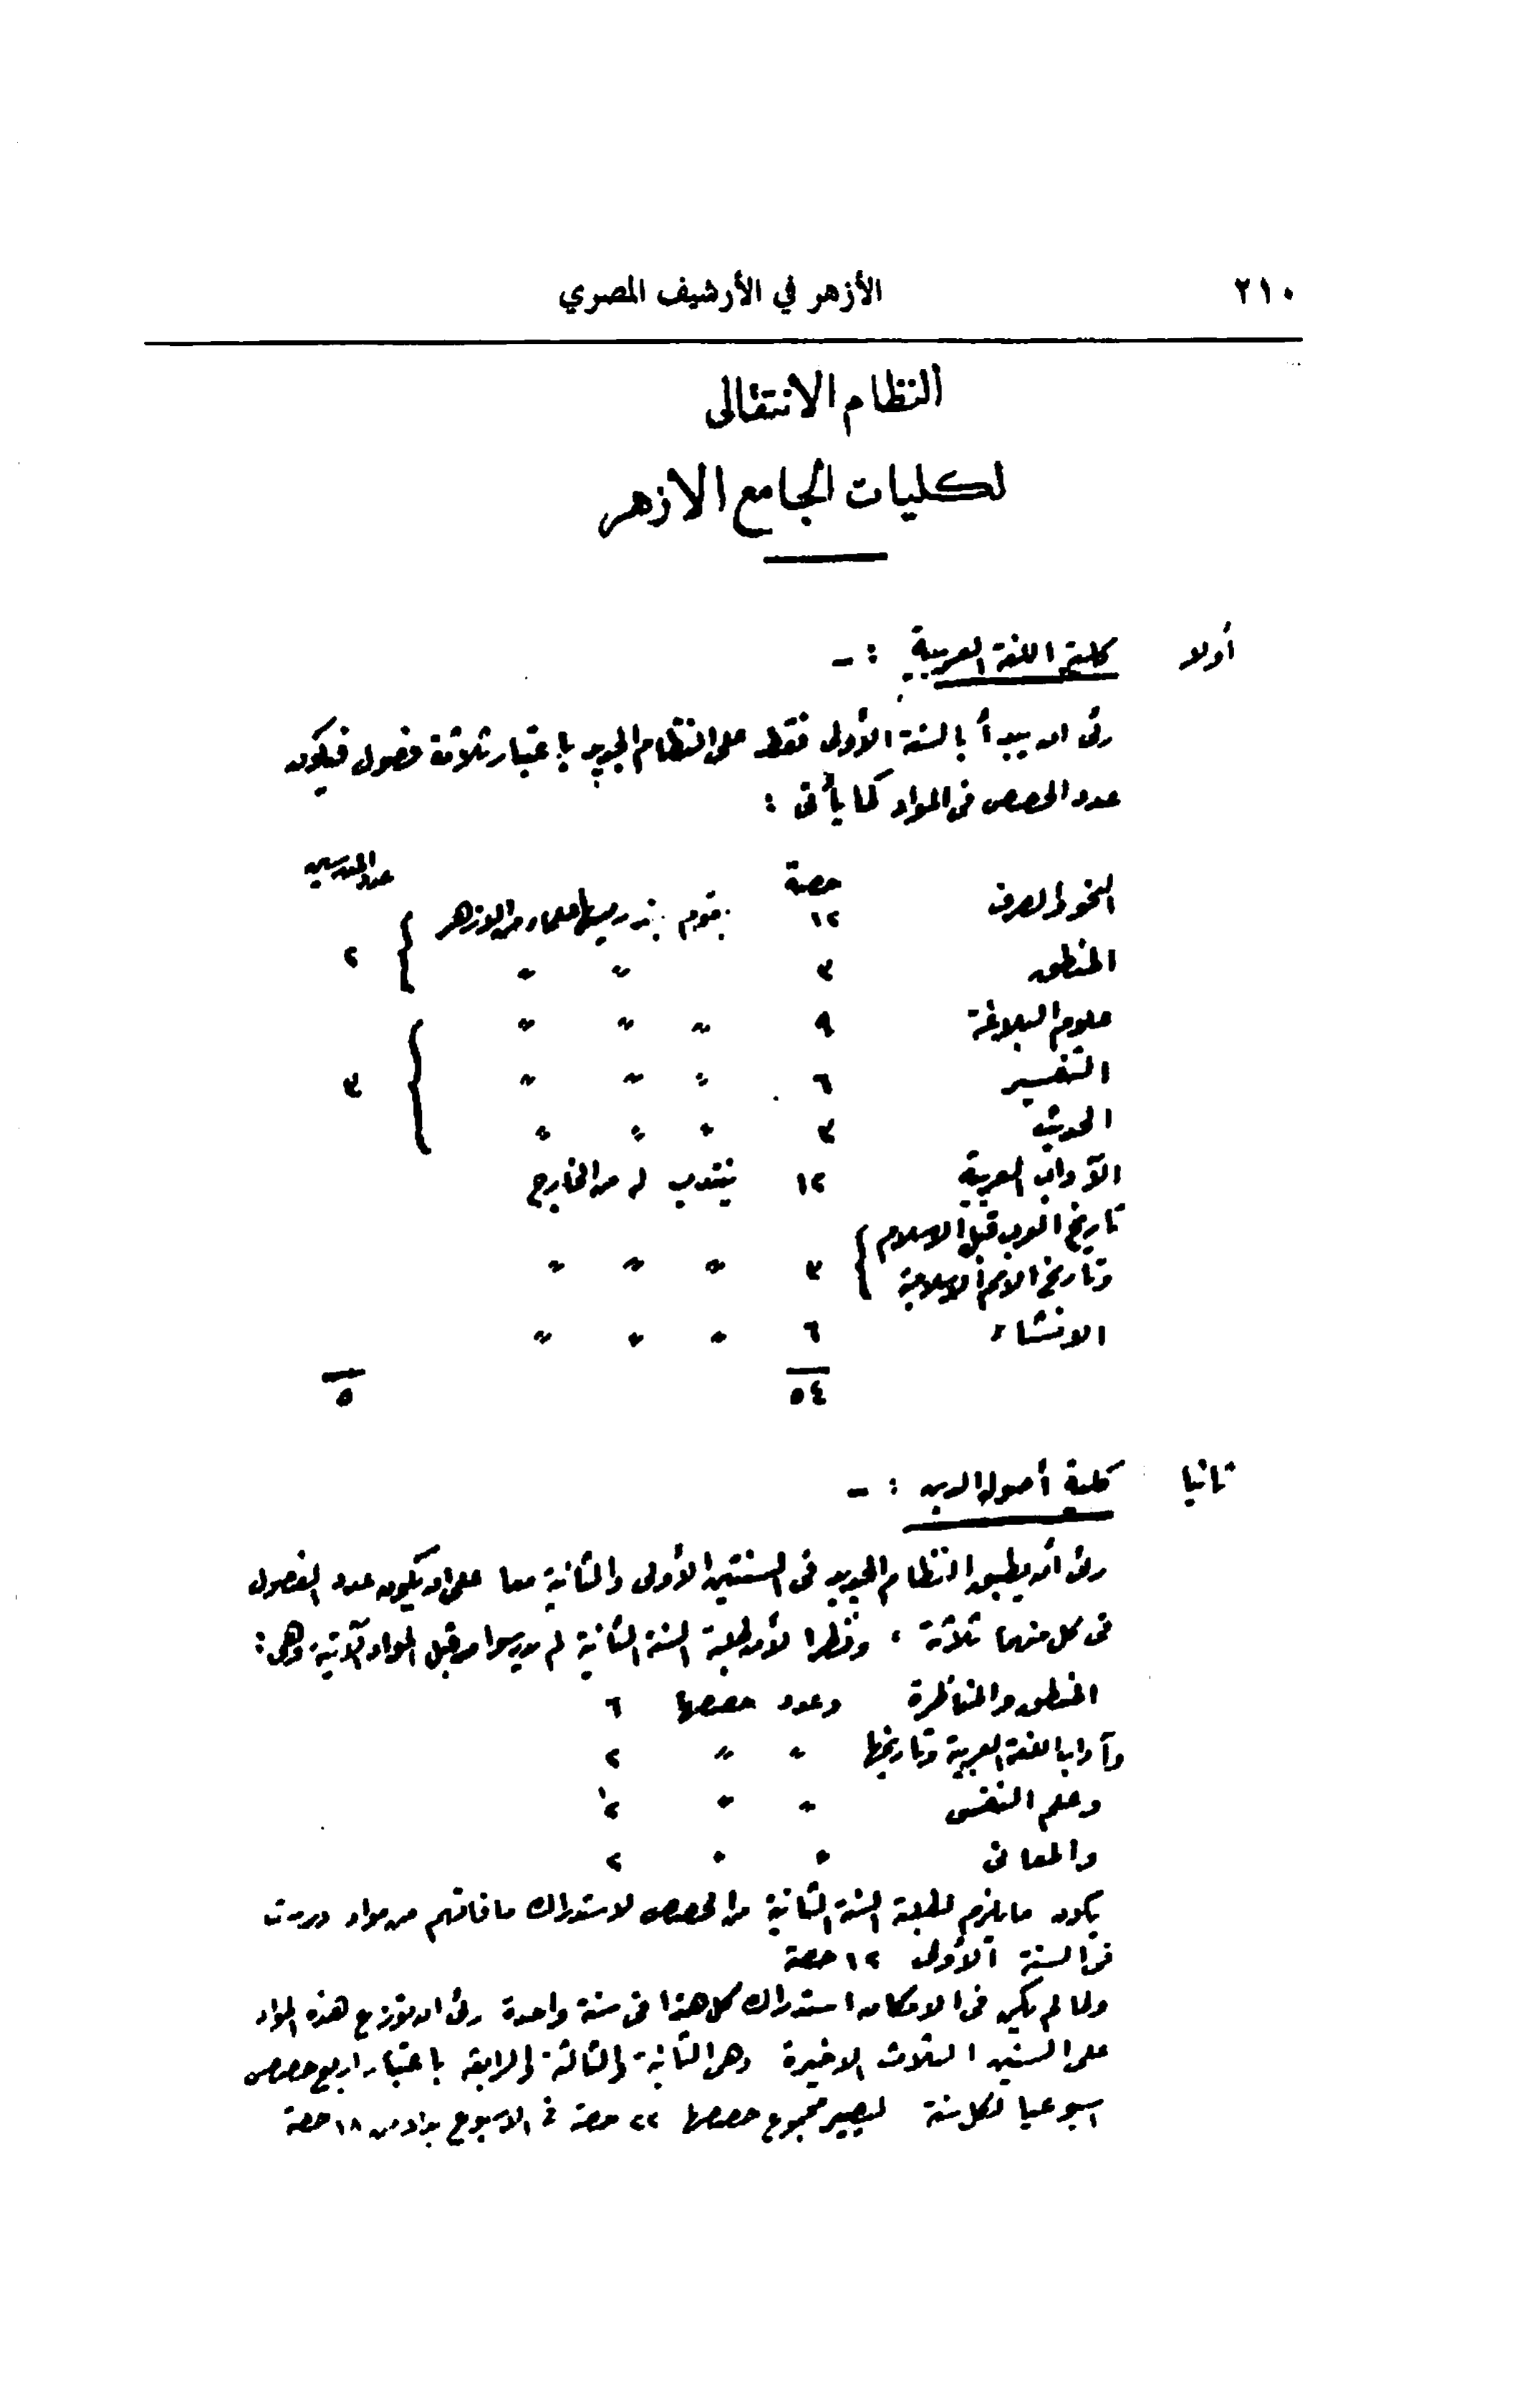 ٢١٠
الأزهر في الأرشيف المصري
النظام الانتقالى
لكليات الجامع الازهر
أولا كلية اللغة العربية : -
رئى ان يبدأ بالسنة الأولى فقط على النظام الجديد باعتبار ثلاثة فصول فيكون
عدد الحصص فى المواد كما يأتى :
حصة عدد المدرسين
النحو والصرف ١٢ يقوم بتدريسها علماء من الازهر
المنطق ٣ " " } ٢
علوم البلاغة ٩ " " "
التفسير ٦ " " " } ٣
الحديث ٣ " " "
الآداب العربية ١٢ ينتدب له من الخارج
تاريخ العرب قبل الاسلام
وتاريخ الامم الاسلامية } ٣ " " "
الانشاء ٦ " " "
٥٤ ٥
ثانيا كلية أصول الدين : -
رئى أن يطبق النظام الجديد فى السنتين الأولى والثانية معا على ان يكون عدد الفصول
فى كل منهما ثلاثة ، ونظرا لأن طلبة السنة الثانية لم يدرسوا من قبل المواد الآتية وهى :
المنطق والمناظرة وعدد حصصها ٦
وآداب اللغة العربية وتاريخها " " ٢
وعلم النفس " " ٢
والمعانى " " ٢
يكون ما يلزم لطلبة السنة الثانية من الحصص لاستدراك ما فاتهم من مواد درست
فى السنة الأولى ١٢ حصة
ولما لم يكن فى الامكان استدراك كل هذا فى سنة واحدة رئى ان توزع هذه المواد
على السنين الثلاث الاخيرة وهى الثانية والثالثة والرابعة باعتبار اربع حصص
اسبوعيا لكل سنة ليصير مجموع حصصها ٢٢ حصة فى الاسبوع بدلا من ١٨ حصة